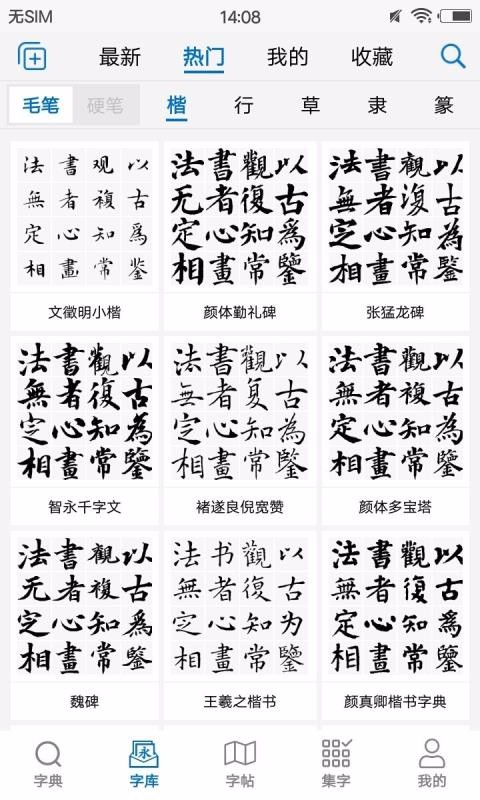 无SIM 14:08
最新 热门 我的 收藏
毛笔 硬笔 楷 行 草 隶 篆
法書观以
無者複古
定心知為
相畫常鉴
文徵明小楷
法書觀以
无者復古
定心知為
相畫常鑒
颜体勤礼碑
法書觀以
無者復古
定心知為
相畫常鑒
张猛龙碑
法書觀以
無者復古
定心知為
相畫常鑒
智永千字文
法書觀以
無者复古
定心知為
相畫常鑒
褚遂良倪宽赞
法書觀以
無者複古
定心知為
相畫常鑒
颜体多宝塔
法書觀以
无者複古
定心知為
相畫常鑒
魏碑
法书觀以
無者復古
定心知为
相畫常鑒
王羲之楷书
法書觀以
無者復古
定心知為
相畫常鑒
颜真卿楷书字典
永
字典 字库 字帖 集字 我的